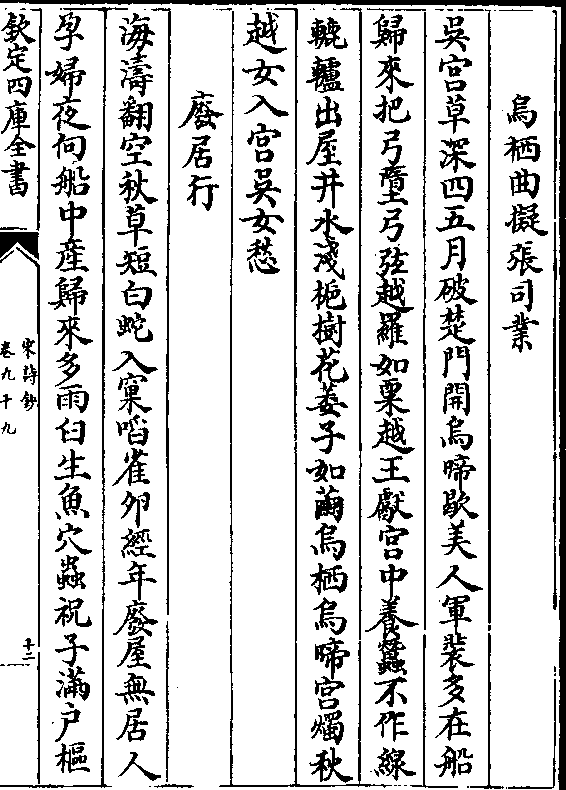 烏栖曲擬張司業
吳宮草深四五月破楚門開烏啼歇美人軍裝多在船
歸來把弓墮弓弦越羅如粟越王獻宮中養蠶不作線
轆轤出屋井水淺梔樹花萎子如繭烏栖烏啼宮燭秋
越女入宮吳女愁
廢居行
海濤翻空秋草短白蛇入窠啗雀卵經年廢屋無居人
孕婦夜向船中産歸來多雨臼生魚穴蟲祝子滿户樞
欽定四庫全書
宋詩鈔
卷九十九
十二